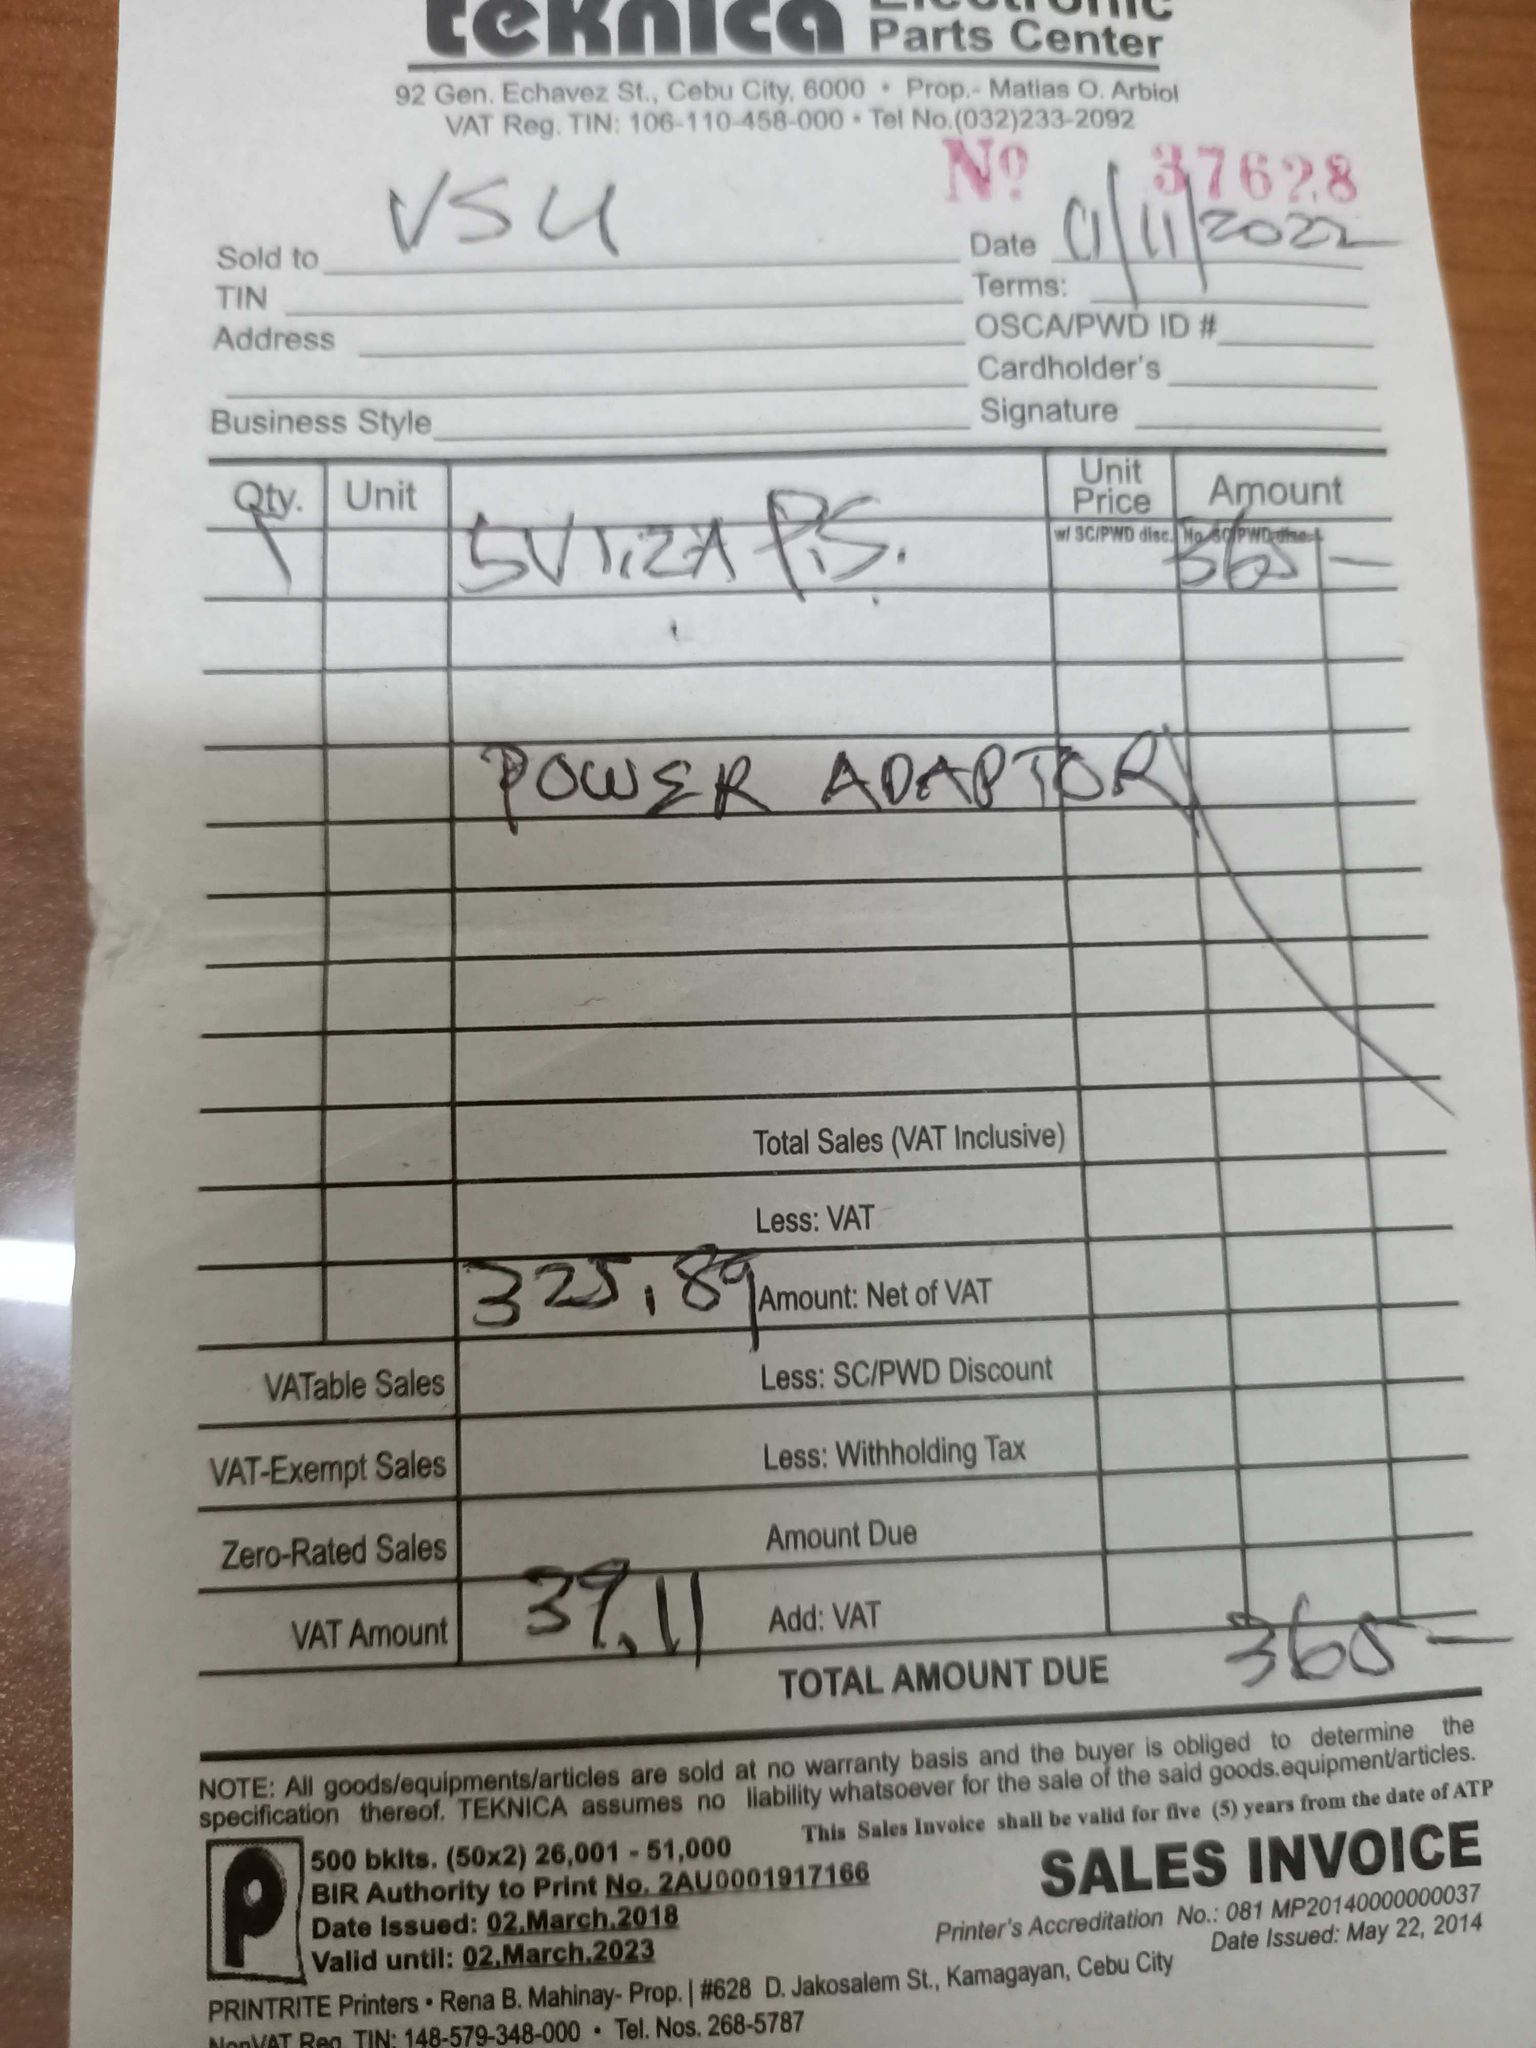 teknica Electronic
Parts Center
92 Gen. Echavez St., Cebu City, 6000 • Prop.- Matias O. Arbiol
VAT Reg. TIN: 106-110-458-000 • Tel No.(032)233-2092
Nº 37628
Sold to VSU Date 01/11/2022
TIN Terms:
Address OSCA/PWD ID #
Cardholder's
Business Style Signature
Qty. Unit Unit Price Amount
w/ SC/PWD disc. No SC/PWD disc.
1 5V1.2A P.S. 365 —
POWER ADAPTOR
Total Sales (VAT Inclusive)
Less: VAT
325.89 Amount: Net of VAT
VATable Sales Less: SC/PWD Discount
VAT-Exempt Sales Less: Withholding Tax
Zero-Rated Sales Amount Due
VAT Amount 39.11 Add: VAT
TOTAL AMOUNT DUE 365 —
NOTE: All goods/equipments/articles are sold at no warranty basis and the buyer is obliged to determine the
specification thereof. TEKNICA assumes no liability whatsoever for the sale of the said goods.equipment/articles.
This Sales Invoice shall be valid for five (5) years from the date of ATP
500 bklts. (50x2) 26,001 - 51,000
BIR Authority to Print No. 2AU0001917166
Date Issued: 02.March.2018
Valid until: 02.March.2023
SALES INVOICE
Printer's Accreditation No.: 081 MP20140000000037
Date Issued: May 22, 2014
PRINTRITE Printers • Rena B. Mahinay- Prop. | #628 D. Jakosalem St., Kamagayan, Cebu City
NonVAT Reg. TIN: 148-579-348-000 • Tel. Nos. 268-5787